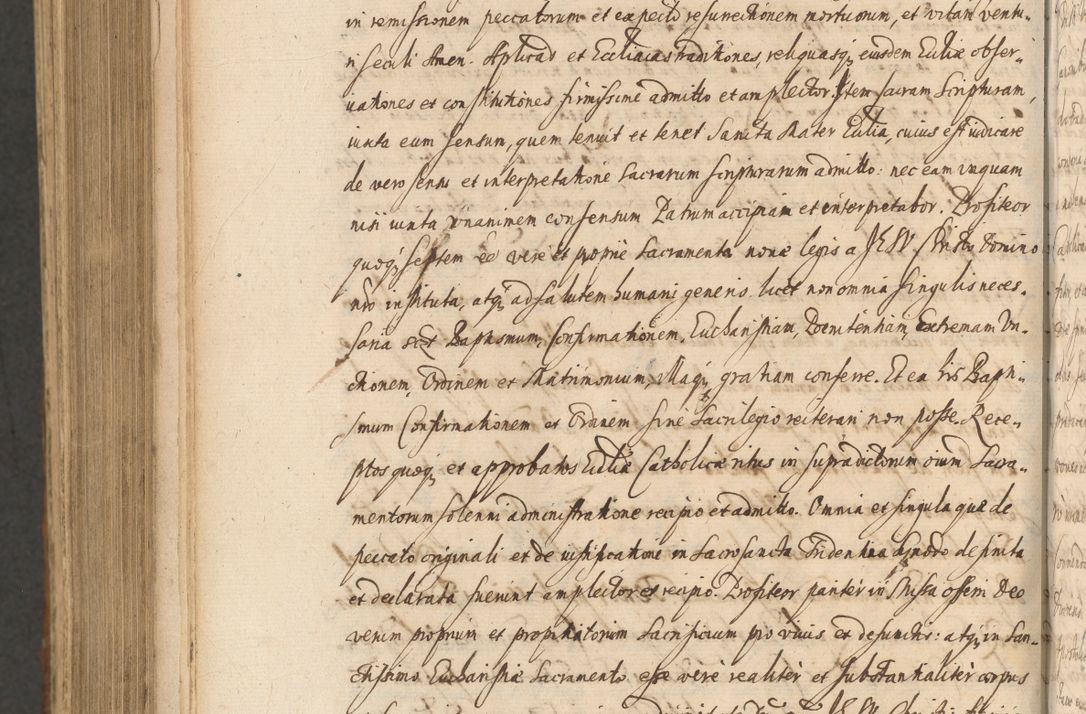 in remissionem peccatorum et expecto resurrectionem mortuorum, et vitam ventu-
ri seculi Amen. Aplicas et Eccliacas traditiones, reliquasq; eiusdem Eccliæ obser-
uationes et constitutiones firmissime admitto et amplector. Item sacram Scripturam,
iuxta eum sensum, quem tenuit et tenet Sancta Mater Ecclia, cuius est iudicare
de vero sensu et interpretatione sacrarum scripturarum admitto: nec eam vnquam
nisi iuxta vnanimem consensum Patrum accipiam et interpretabor. Profiteor
quoq; septem ee vere et proprie Sacramenta nouæ legis a JESV Christo Domino
nro instituta, atq; ad salutem humani generis licet non omnia singulis neces-
saria Baptismum, Confirmationem, Eucharistiam, Poenitentiam, Extremam Vn-
ctionem, Ordinem et Matrimonium, Illaq; gratiam conferre. Et ex his Bapti-
smum Confirmationem et Ordinem sine Sacrilegio reiterari non posse. Rece-
ptos quoq; et approbatos Eccliæ Catholicæ ritus in supradictorum oium Sacra-
mentorum solenni administratione recipio et admitto. Omnia et singula quæ de
peccato originali et de iustificatione in Sacrosancta Tridentina Synodo definita
et declarata fuerunt amplector et recipio. Profiteor pariter in Missa offerri Deo
verum proprium et propitiatorium Sacrificium pro viuis et defunctis: atq; in San-
ctissimo Eucharistiæ Sacramento esse vere realiter et substantialiter corpus